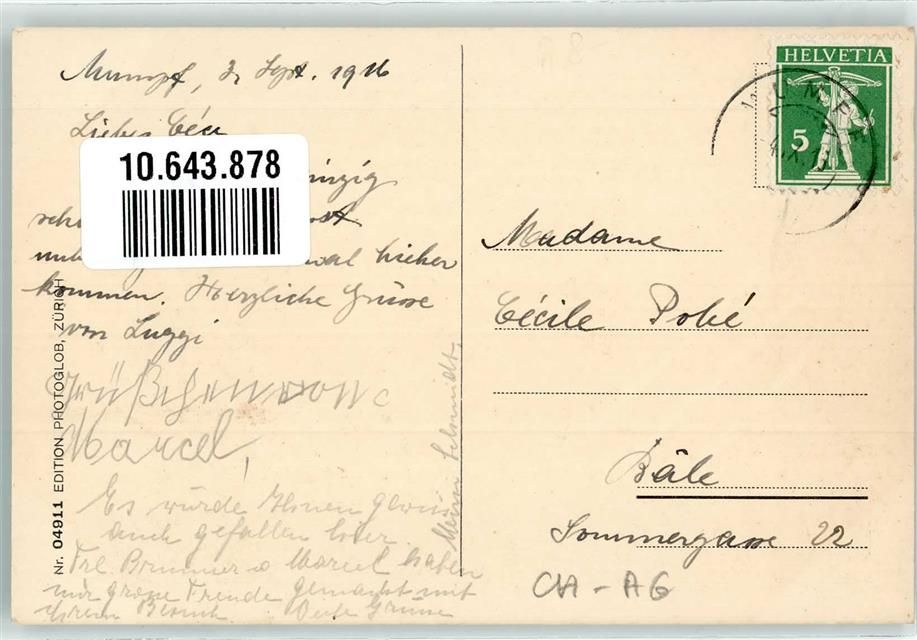 Mumpf, 3. Sept. 1916
Liebe Céci
10.643.878
einzig
mal hieher
kommen. Herzliche Grüsse
von Luggi
Grüßchen von
Marcel,
Es würde Ihnen gewiss
auch gefallen hier.
Frl. Brunner u Marcel haben
mir grosse Freude gemacht mit
ihrem Besuch. Viele Grüsse
Schmidt
Nr. 04911 EDITION PHOTOGLOB, ZÜRICH
HELVETIA
5
Madame
Cécile Pohé
Bâle
Sommergasse 22
CH-AG